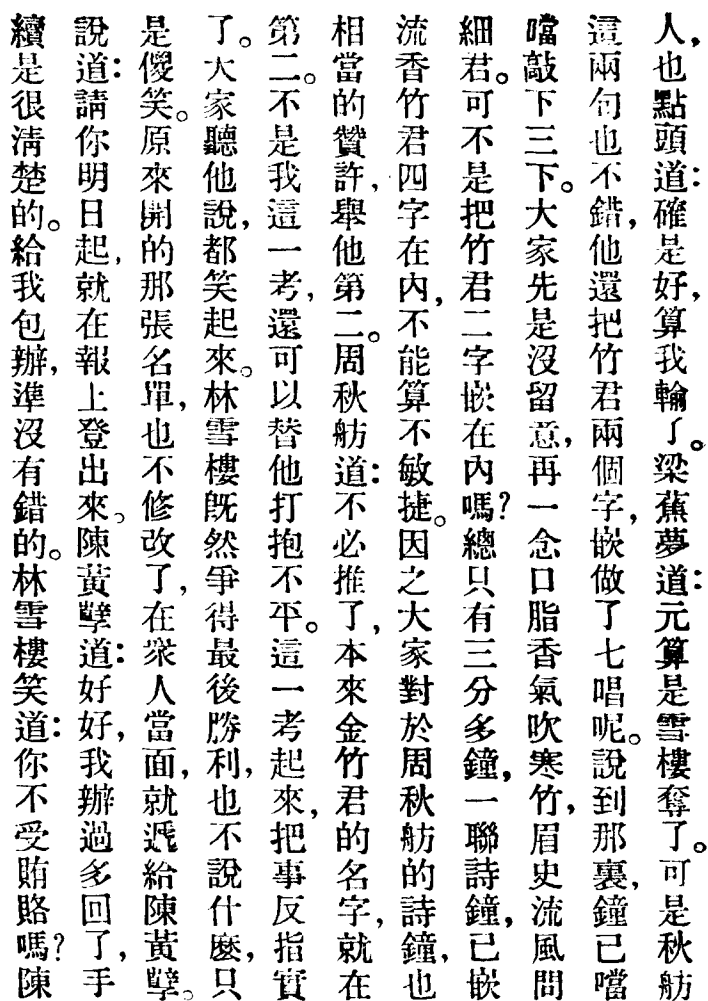 人，也點頭道：確是好，算我輸了。梁蕉夢道：元算是雪樓奪了。可是秋舫
這兩句也不錯，他還把竹君兩個字，嵌做了七唱呢。說到那裏，鐘已噹
噹敲下三下。大家先是沒留意，再一念口脂香氣吹寒竹，眉史流風問
細君。可不是把竹君二字嵌在內嗎？總只有三分多鐘，一聯詩鐘，已嵌
流香竹君四字在內，不能算不敏捷。因之大家對於周秋舫的詩鐘，也
相當的贊許，舉他第二。周秋舫道：不必推了，本來金竹君的名字，就在
第二。不是我這一考，還可以替他打抱不平。這一考起來，把事反指實
了。大家聽他說，都笑起來。林雪樓既然爭得最後勝利，也不說什麼，只
是傻笑。原來開的那張名單，也不修改了，在衆人當面，就遞給陳黃孽。
說道：請你明日起，就在報上登出來。陳黃孽道：好好，我辦過多回了，手
續是很清楚的。給我包辦，準沒有錯的。林雪樓笑道：你不受賄賂嗎？陳